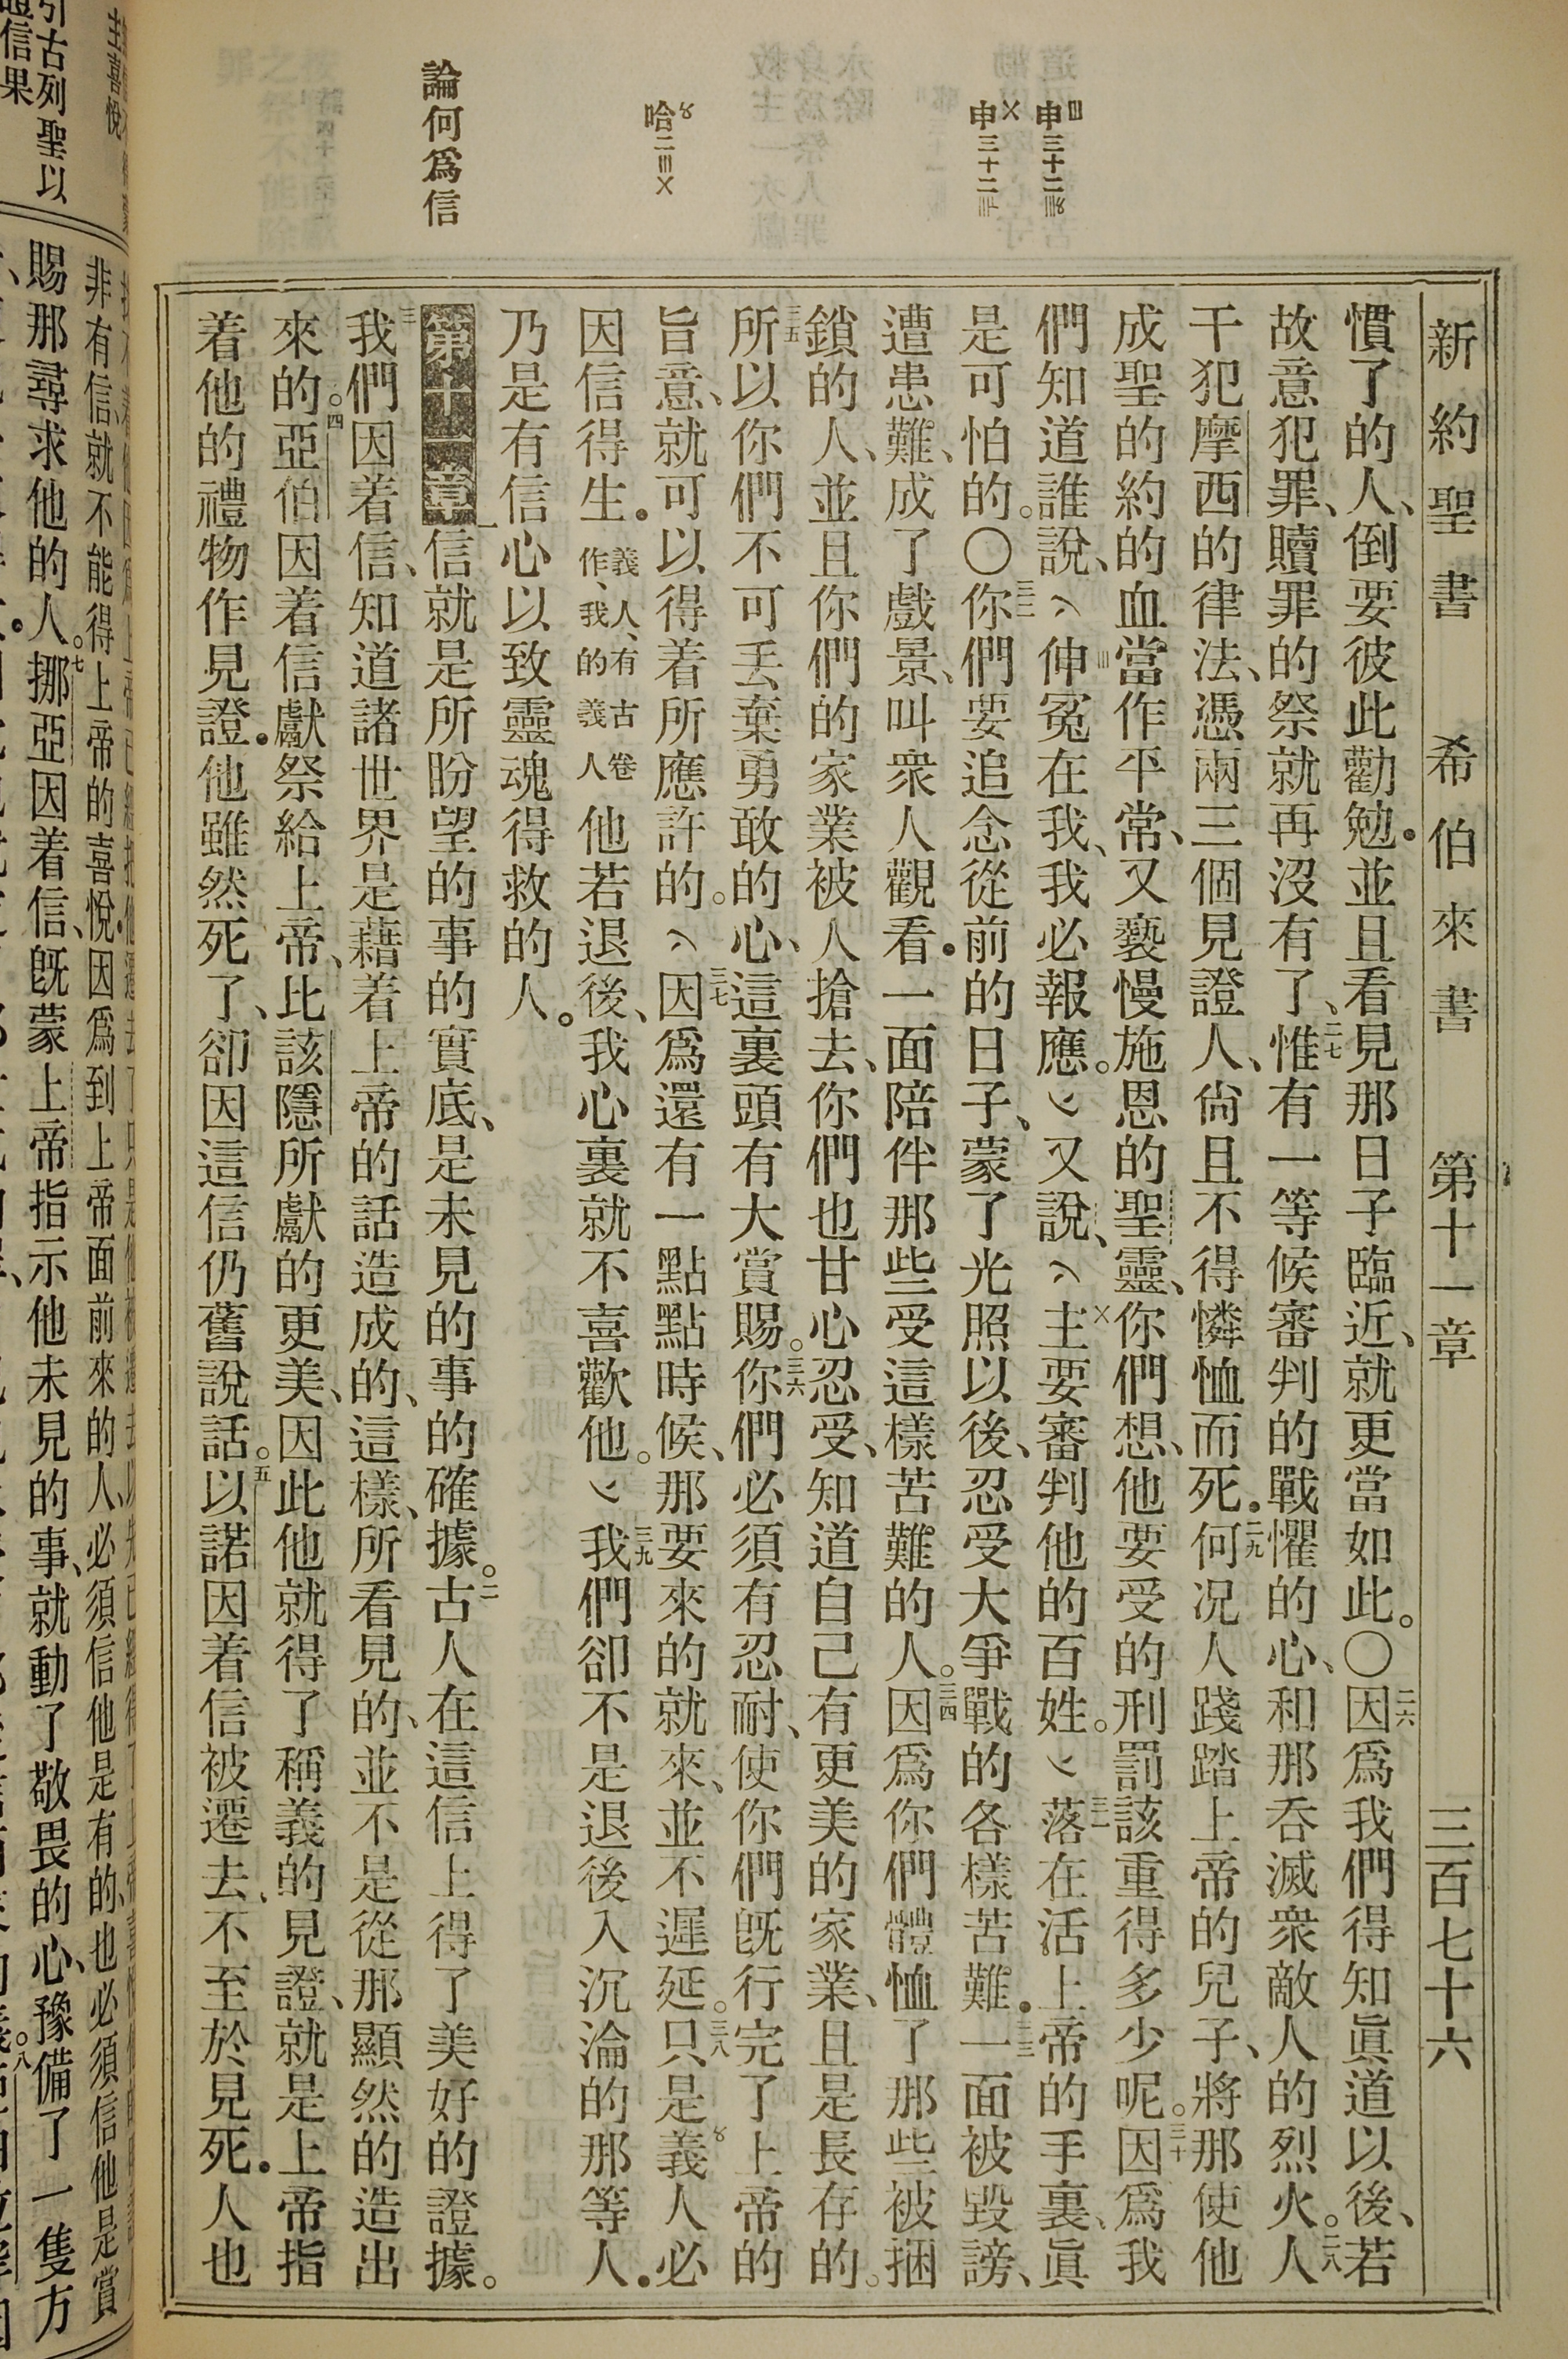 新約聖書 希伯來書 第十一章 三百七十六
慣了的人、倒要彼此勸勉．並且看見那日子臨近、就更當如此。〇二六因爲我們得知眞道以後、若
故意犯罪、贖罪的祭就再沒有了、二七惟有一等候審判的戰懼的心、和那吞滅衆敵人的烈火。二八人
干犯摩西的律法、憑兩三個見證人、尙且不得憐恤而死．二九何況人踐踏上帝的兒子、將那使他
成聖的約的血當作平常、又褻慢施恩的聖靈、你們想、他要受的刑罰該重得多少呢。三十因爲我
們知道誰說、伸冤在我、我必報應。又說、主要審判他的百姓。三一落在活上帝的手裏、眞
是可怕的。〇三二你們要追念從前的日子、蒙了光照以後、忍受大爭戰的各樣苦難．三三一面被毀謗、
遭患難、成了戲景、叫衆人觀看．一面陪伴那些受這樣苦難的人。三四因爲你們體恤了那些被捆
鎖的人、並且你們的家業被人搶去、你們也甘心忍受、知道自己有更美的家業、且是長存的。
三五所以你們不可丟棄勇敢的心、這裏頭有大賞賜。三六你們必須有忍耐、使你們旣行完了上帝的
旨意、就可以得着所應許的。三七因爲還有一點點時候、那要來的就來、並不遲延。三八只是義人必
因信得生．義人、有古卷作、我的義人他若退後、我心裏就不喜歡他。三九我們卻不是退後入沉淪的那等人．
乃是有信心以致靈魂得救的人。
第十一章 一信就是所盼望的事的實底、是未見的事的確據。二古人在這信上得了美好的證據。
三我們因着信、知道諸世界是藉着上帝的話造成的、這樣、所看見的、並不是從那顯然的造出
來的。〇四亞伯因着信獻祭給上帝、比該隱所獻的更美、因此他就得了稱義的見證、就是上帝指
着他的禮物作見證．他雖然死了、卻因這信仍舊說話。五以諾因着信被遷去、不至於見死．人也
申三十二
申三十二
哈二
論何爲信
非有信、就不能得上帝的喜悅．因爲到上帝面前來的人、必須信他是有的、也必須信他是賞
賜那尋求他的人。七挪亞因着信、旣蒙上帝指示他未見的事、就動了敬畏的心、豫備了一隻方
主喜悅
引古列聖以
信果